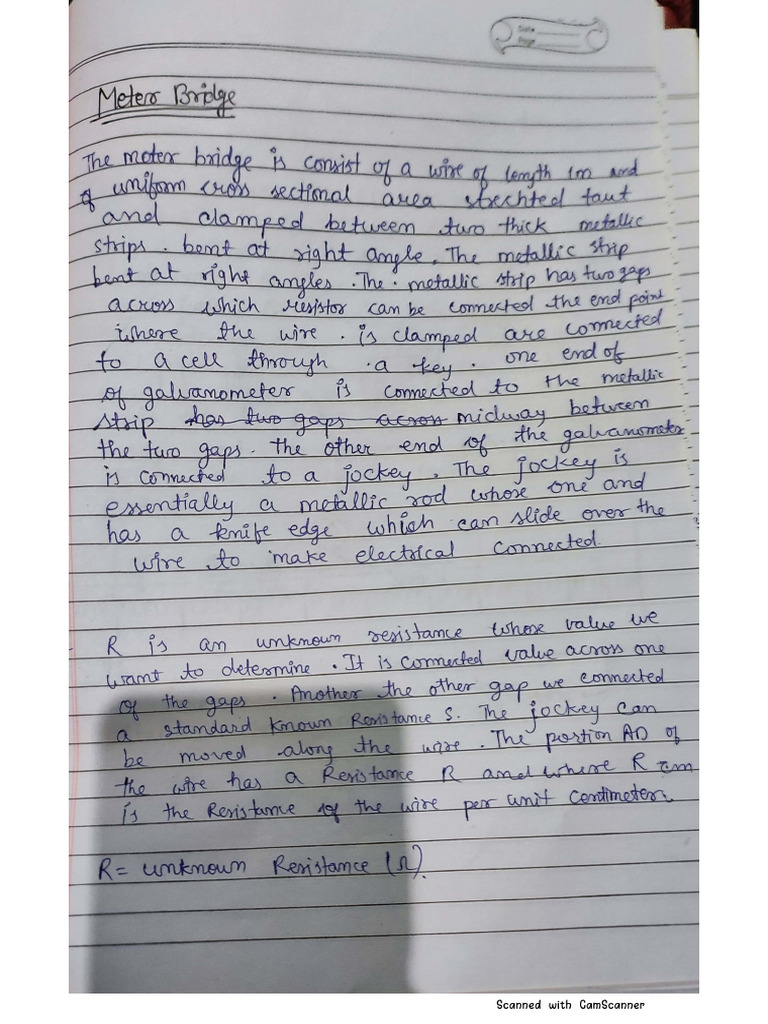 Date
Page
Meter Bridge
The meter bridge is consist of a wire of length 1m and
of uniform cross sectional area strechted taut
and clamped between two thick metallic
strips. bent at right angle. The metallic strip
bent at right angles. The. metallic strip has two gaps
across which resistor can be connected the end point
where the wire. is clamped are connected
to a cell through .a key. one end of
of galvanometer is connected to the metallic
strip has two gaps across midway between
the two gaps. the other end of the galvanometer
is connected to a jockey. The jockey is
essentially a metallic rod whose one and
has a knife edge which can slide over the
wire to make electrical connected.
R is an unknown resistance whose value we
want to determine. It is connected value across one
of the gaps. Another the other gap we connected
a standard known Resistance S. The jockey can
be moved along the wire. The portion AD of
the wire has a Resistance R and where R cm
is the Resistance of the wire per unit centimeter.
R = unknown Resistance (Ω).
Scanned with CamScanner